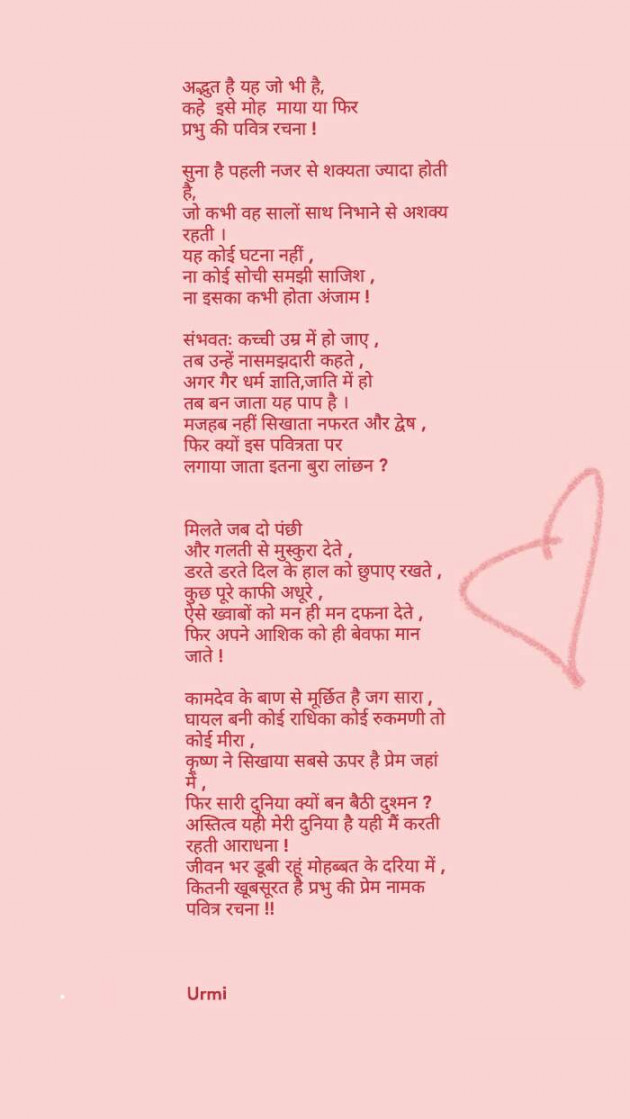 अद्भुत है यह जो भी है,
कहे इसे मोह माया या फिर
प्रभु की पवित्र रचना !
सुना है पहली नजर से शक्यता ज्यादा होती
है,
जो कभी वह सालों साथ निभाने से अशक्य
रहती ।
यह कोई घटना नहीं ,
ना कोई सोची समझी साजिश ,
ना इसका कभी होता अंजाम !
संभवतः कच्ची उम्र में हो जाए ,
तब उन्हें नासमझदारी कहते ,
अगर गैर धर्म ज्ञाति,जाति में हो
तब बन जाता यह पाप है ।
मजहब नहीं सिखाता नफरत और द्वेष ,
फिर क्यों इस पवित्रता पर
लगाया जाता इतना बुरा लांछन ?
मिलते जब दो पंछी
और गलती से मुस्कुरा देते ,
डरते डरते दिल के हाल को छुपाए रखते ,
कुछ पूरे काफी अधूरे ,
ऐसे ख्वाबों को मन ही मन दफना देते ,
फिर अपने आशिक को ही बेवफा मान
जाते !
कामदेव के बाण से मूर्छित है जग सारा ,
घायल बनी कोई राधिका कोई रुकमणी तो
कोई मीरा ,
कृष्ण ने सिखाया सबसे ऊपर है प्रेम जहां
में ,
फिर सारी दुनिया क्यों बन बैठी दुश्मन ?
अस्तित्व यही मेरी दुनिया है यही मैं करती
रहती आराधना !
जीवन भर डूबी रहूं मोहब्बत के दरिया में ,
कितनी खूबसूरत है प्रभु की प्रेम नामक
पवित्र रचना !!
Urmi